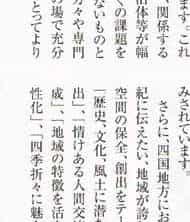 ます。これ
関係する
治体等が幅
くの課題を
ないものと
方々や専門
の場で充分
とってより
みされています。
さらに、四国地方にお
紀に伝えたい、地域が誇
空間の保全、創出をテー
「歴史、文化、風土に潜
出」、「情けある人間交
成」、「地域の特徴を活
性化」、「四季折々に魅